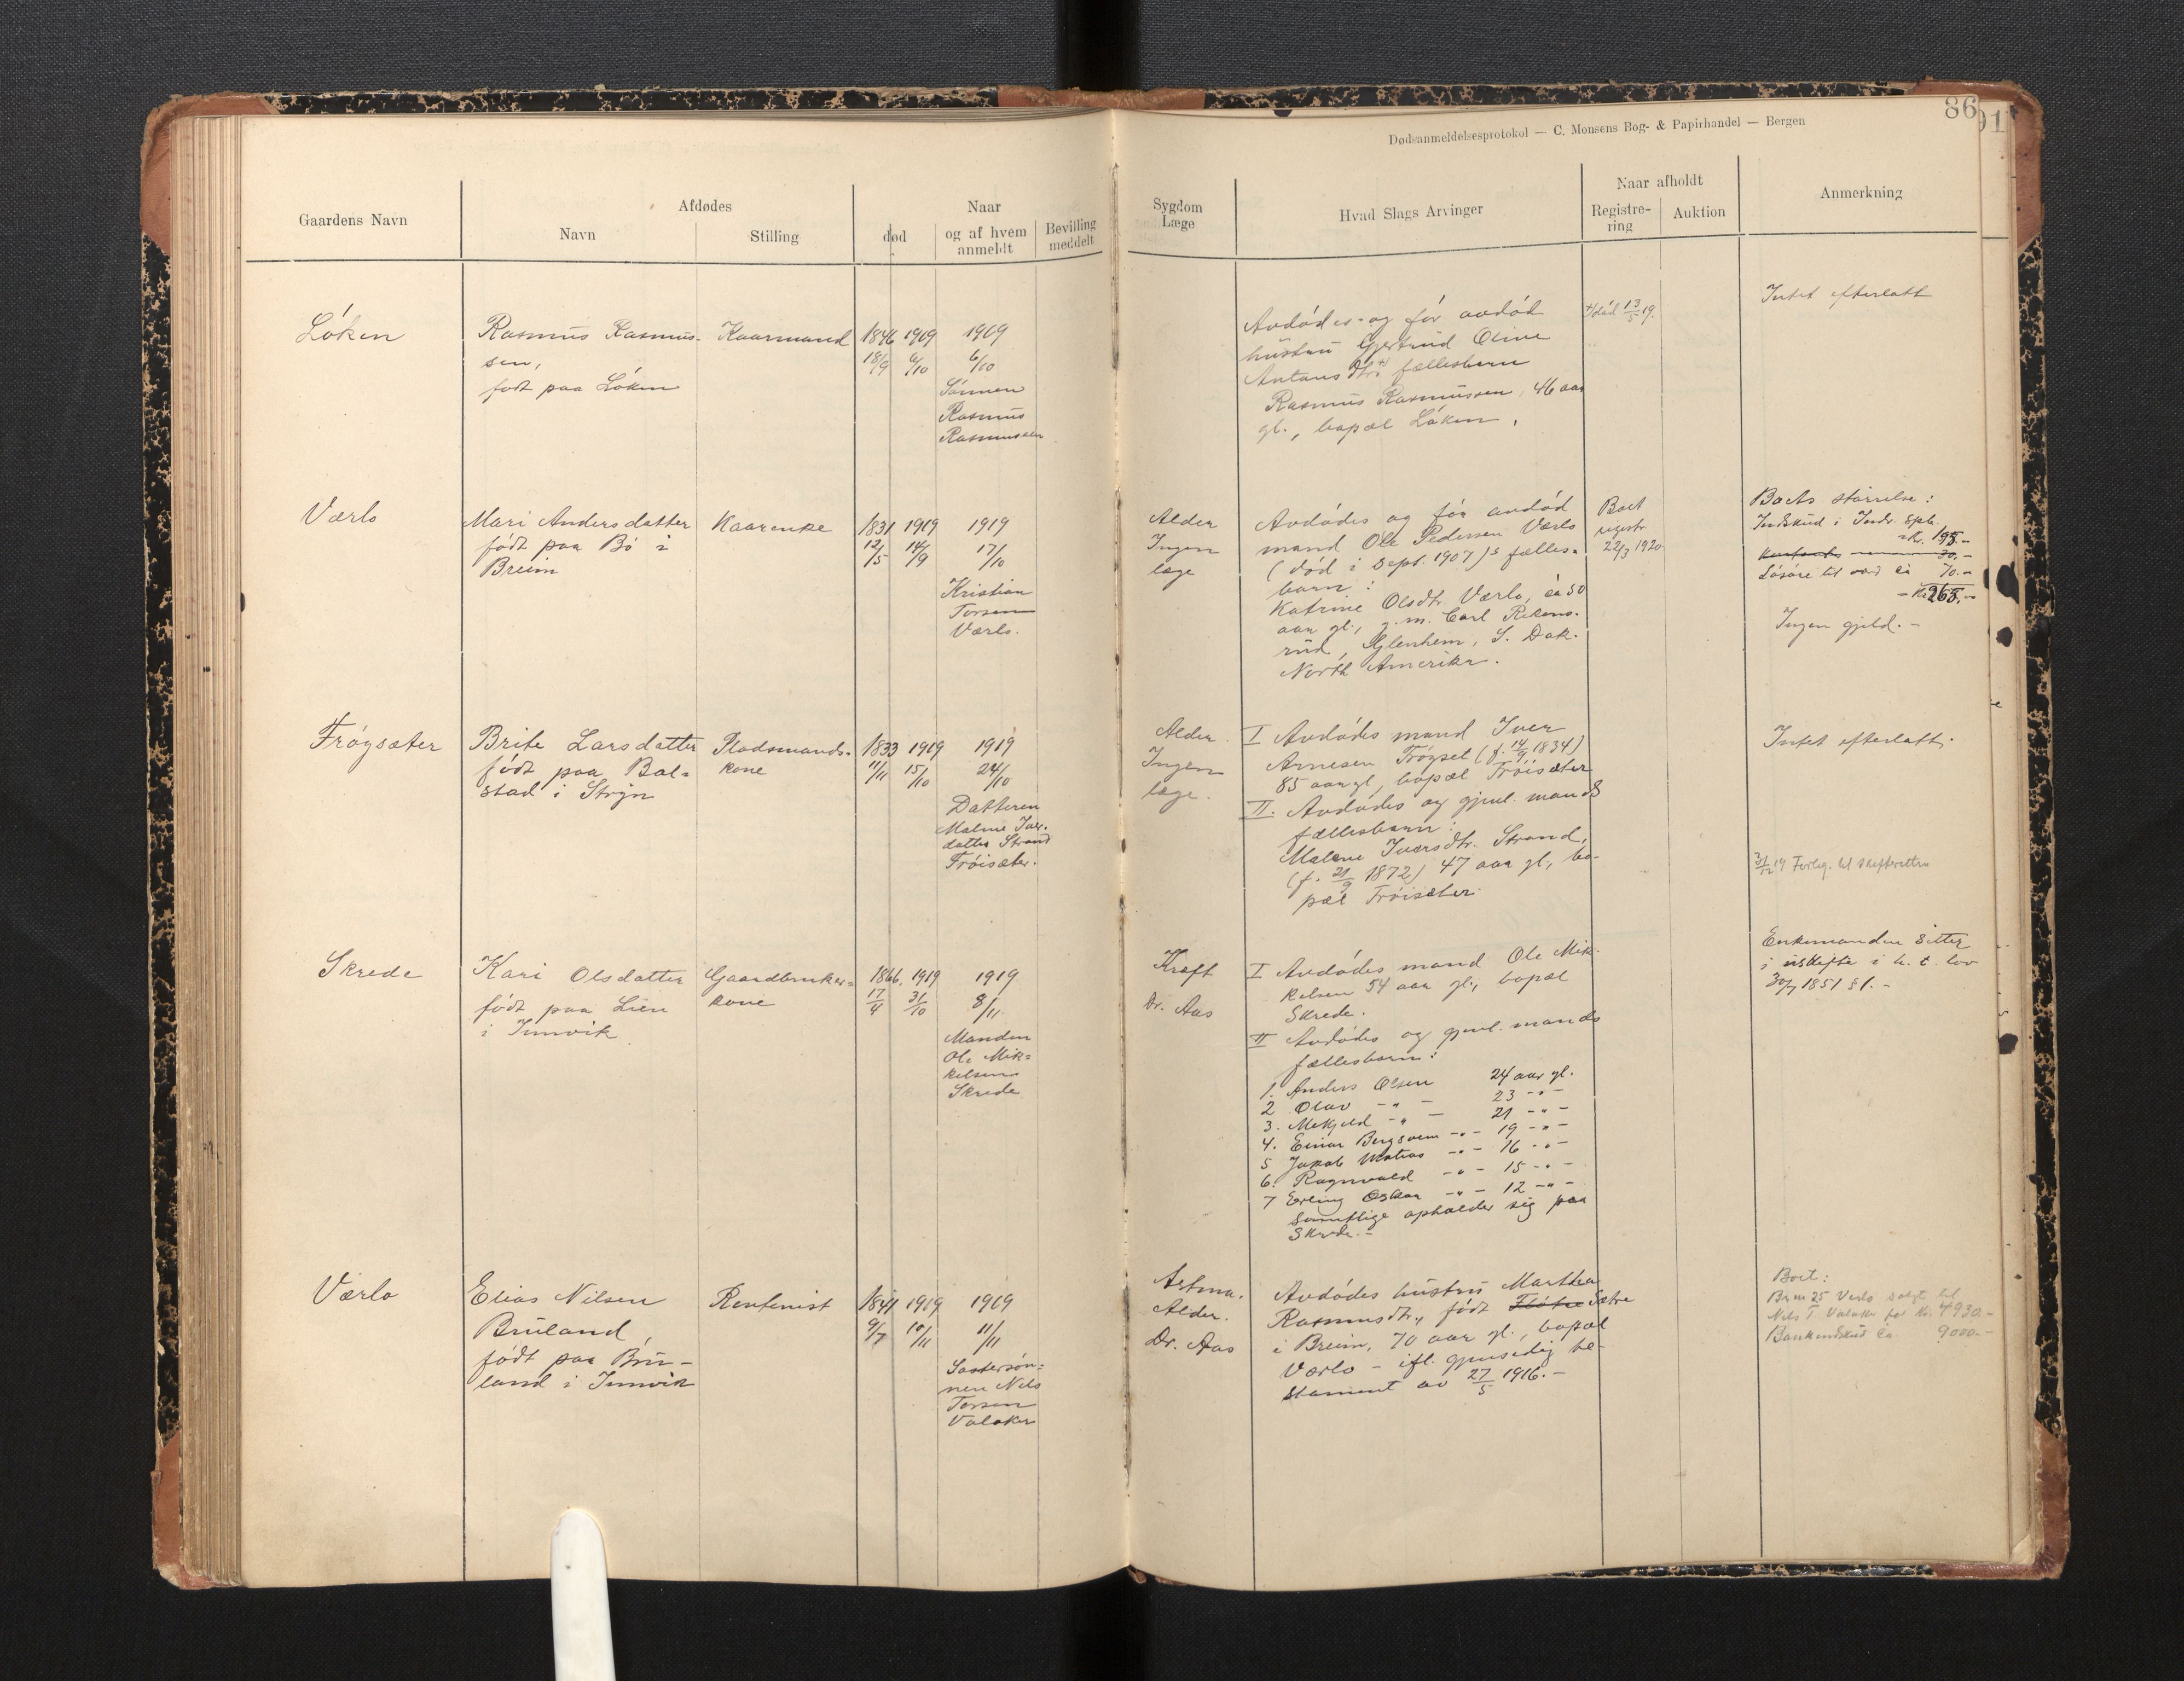 86
91
Dødsanmeldelsesprotokol — C. Monsens Bog- & Papirhandel — Bergen
Gaardens Navn
Afdødes
Navn
Stilling
Naar
død
og af hvem
anmeldt
Bevilling
meddelt
Sygdom
Læge
Hvad Slags Arvinger
Naar afholdt
Registre-
ring
Auktion
Anmerkning
Løken
Rasmus Rasmus-
sen,
født paa Løken
Kaarmand
1846 1919
18/9 6/10
1919
6/10
Sønnen
Rasmus
Rasmussen
Avdødes og før avdød
hustru Gjertrud Oline
Antons dtr.s fællesbarn
Rasmus Rasmussen, 46 aar
gl., bopæl Løken.
+) død 13/5 19.
Intet efterlatt
Værlo
Mari Andersdatter
født paa Bø i
Breim
Kaarenke
1831 1919
12/5 14/9
1919
17/10
Kristian
Torsen
Værlo.
Alder
Ingen
læge
Avdødes og før avdød
mand Ole Pedersen Værlo
(død i Sept. 1907)s fælles-
barn:
Katrine Olsdtr. Værlo, ca 50
aar gl., g. m. Carl
Glenhem, S. Dak.
North Amerika.
Boet
registr.
22/3 1920.
Boets størrelse:
Indskud i Indr. Spb.
Kr. 195.-
30.-
Løsøre til værd ca 70.-
Kr 265.-
Ingen gjeld.-
Frøysæter
Brite Larsdatter
født paa Bal-
stad i Stryn
Pladsmands-
kone
1833 1919
11/11 15/10
1919
24/10
Datteren
Malene Iver-
datter Strand
Frøisæter.
Alder
Ingen
læge.
I Avdødes mand Iver
Arnesen Frøyset (f. 14/9 1834)
85 aar gl, bopæl Frøisæter
II. Avdødes og gjenl. mands
fællesbarn:
Malene Iversdtr. Strand,
(f. 21/9 1872) 47 aar gl, bo-
pæl Frøisæter
Intet efterlatt.
31/12 19 Forleg. til skifteretten
Skrede
Kari Olsdatter
født paa Lien
i Innvik
Gaardbruker-
kone
1866. 1919
17/4 31/10
1919
8/11
Manden
Ole Mik-
kelsen
Skrede
Kræft
Dr. Aas
I Avdødes mand Ole Mik-
kelsen 54 aar gl., bopæl
Skrede.
II Avdødes og gjenl. mands
fællesbarn:
1. Anders Olsen 24 aar gl.
2 Olav -"- 23 -"-
3. Mekjeld -"- 21 -"-
4. Einar Bergsvein -"- 19 -"-
5 Jakob Matias -"- 16 -"-
6. Ragnvald -"- 15 -"-
7 Erling Oskar -"- 12 -"-
Samtlige opholder sig paa
Skrede.-
Enkemanden sitter
i uskifte i h. t. lov
30/7 1851 § 1.-
Værlo
Elias Nilsen
Bruland,
født paa Bru-
land i Innvik
Rentenist
1841 1919
9/7 10/11
1919
11/11
Søstersøn-
nen Nils
Torsen
Valaker
Astma.
Alder.
Dr. Aas
Avdødes hustru Martha
Rasmusdtr., født Fløtre Sætre
i Breim, 70 aar gl., bopæl
Værlo - ifl. gjensidig te-
stament av 27/5 1916.-
Boet:
Brn 25 Verlo solgt til
Nils T Valaker for kr. 4930.-
Bankindskud ca. 9000.-